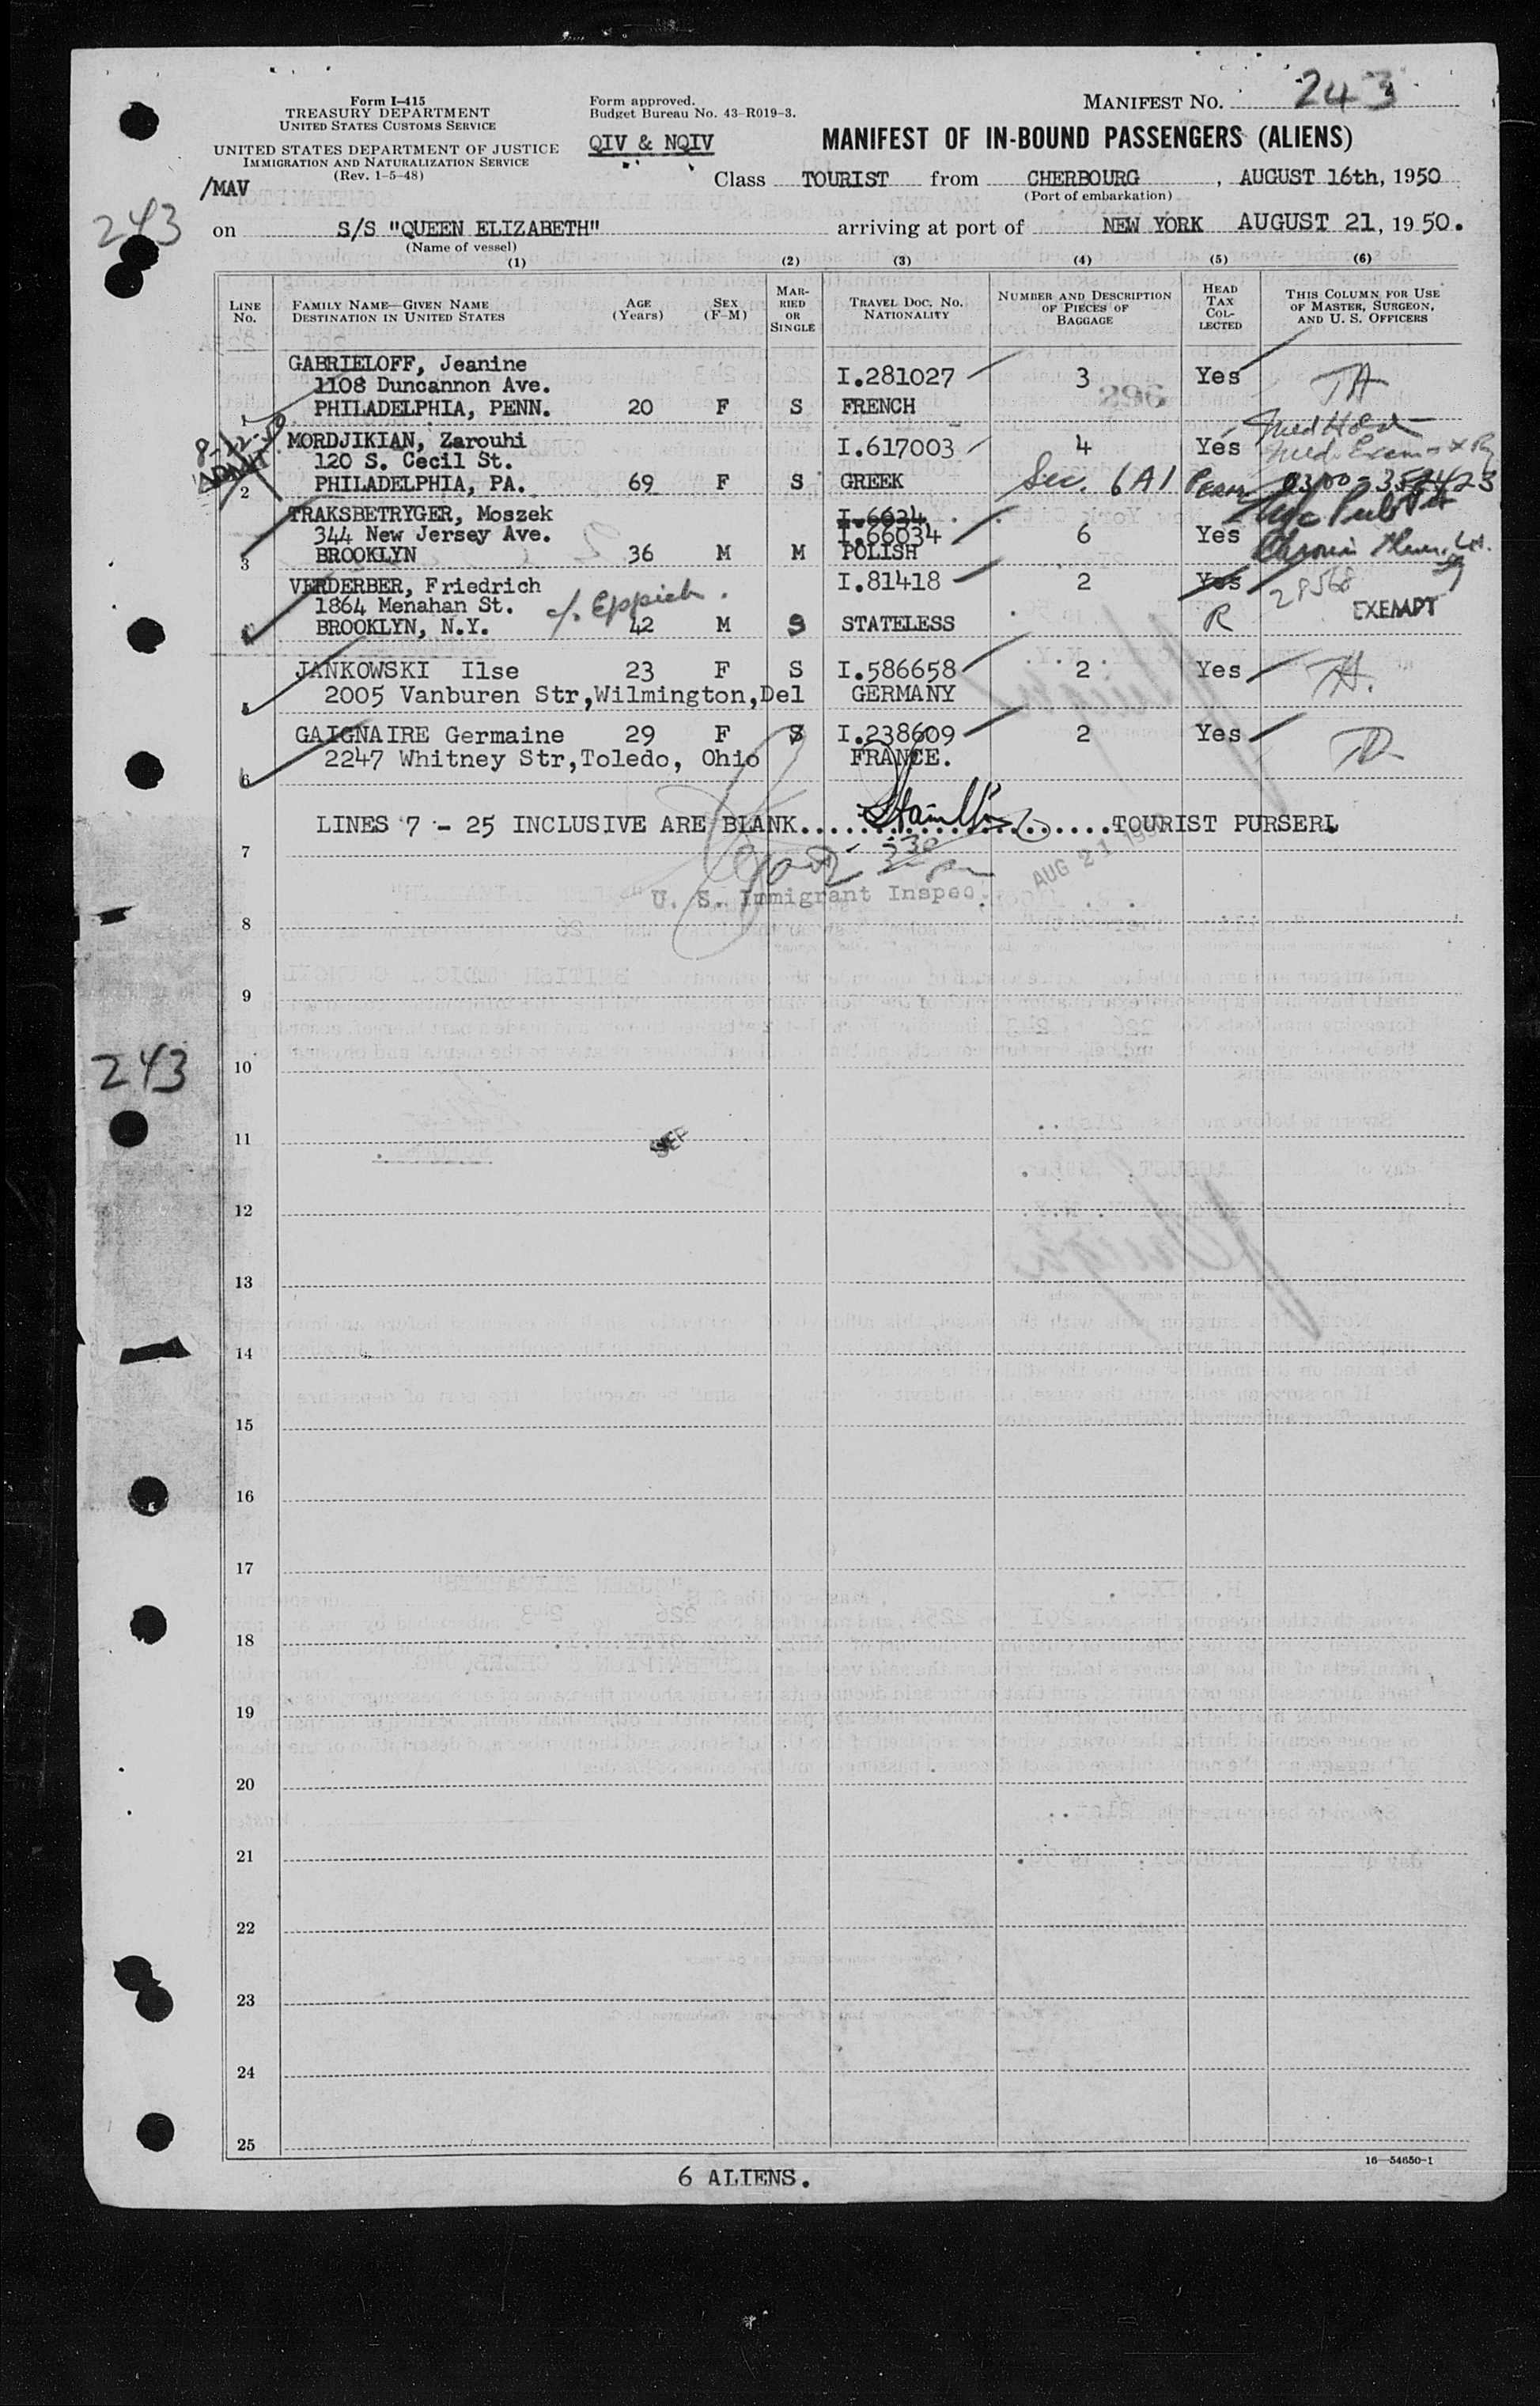 Form I-415
TREASURY DEPARTMENT
UNITED STATES CUSTOMS SERVICE
UNITED STATES DEPARTMENT OF JUSTICE
IMMIGRATION AND NATURALIZATION SERVICE
(Rev. 1-5-48)
/MAV
243
Form approved.
Budget Bureau No. 43-R019-3.
QIV & NQIV
MANIFEST NO. 243
MANIFEST OF IN-BOUND PASSENGERS (ALIENS)
Class TOURIST from CHERBOURG, AUGUST 16th, 1950
(Port of embarkation)
on S/S "QUEEN ELIZABETH" arriving at port of NEW YORK AUGUST 21, 1950.
(Name of vessel)
(1) (2) (3) (4) (5) (6)
LINE NO.
FAMILY NAME—GIVEN NAME
DESTINATION IN UNITED STATES
AGE (Years)
SEX (F-M)
MARRIED OR SINGLE
TRAVEL DOC. NO. NATIONALITY
NUMBER AND DESCRIPTION OF PIECES OF BAGGAGE
HEAD TAX COLLECTED
THIS COLUMN FOR USE OF MASTER, SURGEON, AND U. S. OFFICERS
GABRIELOFF, Jeanine I.281027 3 Yes
1108 Duncannon Ave. 296
1 PHILADELPHIA, PENN. 20 F S FRENCH
MORDJIKIAN, Zarouhi I.617003 4 Yes Med Hold
ADMIT 120 S. Cecil St. Med. Exam
2 PHILADELPHIA, PA. 69 F S GREEK Sec. 6A1 0300-352423
TRAKSBETRYGER, Moszek I.6634
344 New Jersey Ave. I.66034 6 Yes
3 BROOKLYN 36 M M POLISH
VERDERBER, Friedrich I.81418 2 Yes 28568
1864 Menahan St. c/o Eppich. EXEMPT
BROOKLYN, N.Y. 42 M S STATELESS R
JANKOWSKI Ilse 23 F S I.586658 2 Yes
5 2005 Vanburen Str,Wilmington,Del GERMANY
GAIGNAIRE Germaine 29 F S I.238609 2 Yes
6 2247 Whitney Str,Toledo, Ohio FRANCE.
LINES 7 - 25 INCLUSIVE ARE BLANK..........TOURIST PURSERL
7
AUG 21 1950
U. S. Immigrant Inspec.
8
9
10
243
11
SEP
12
13
14
15
16
17
18
19
20
21
22
23
24
25
16—54650-1
6 ALIENS.